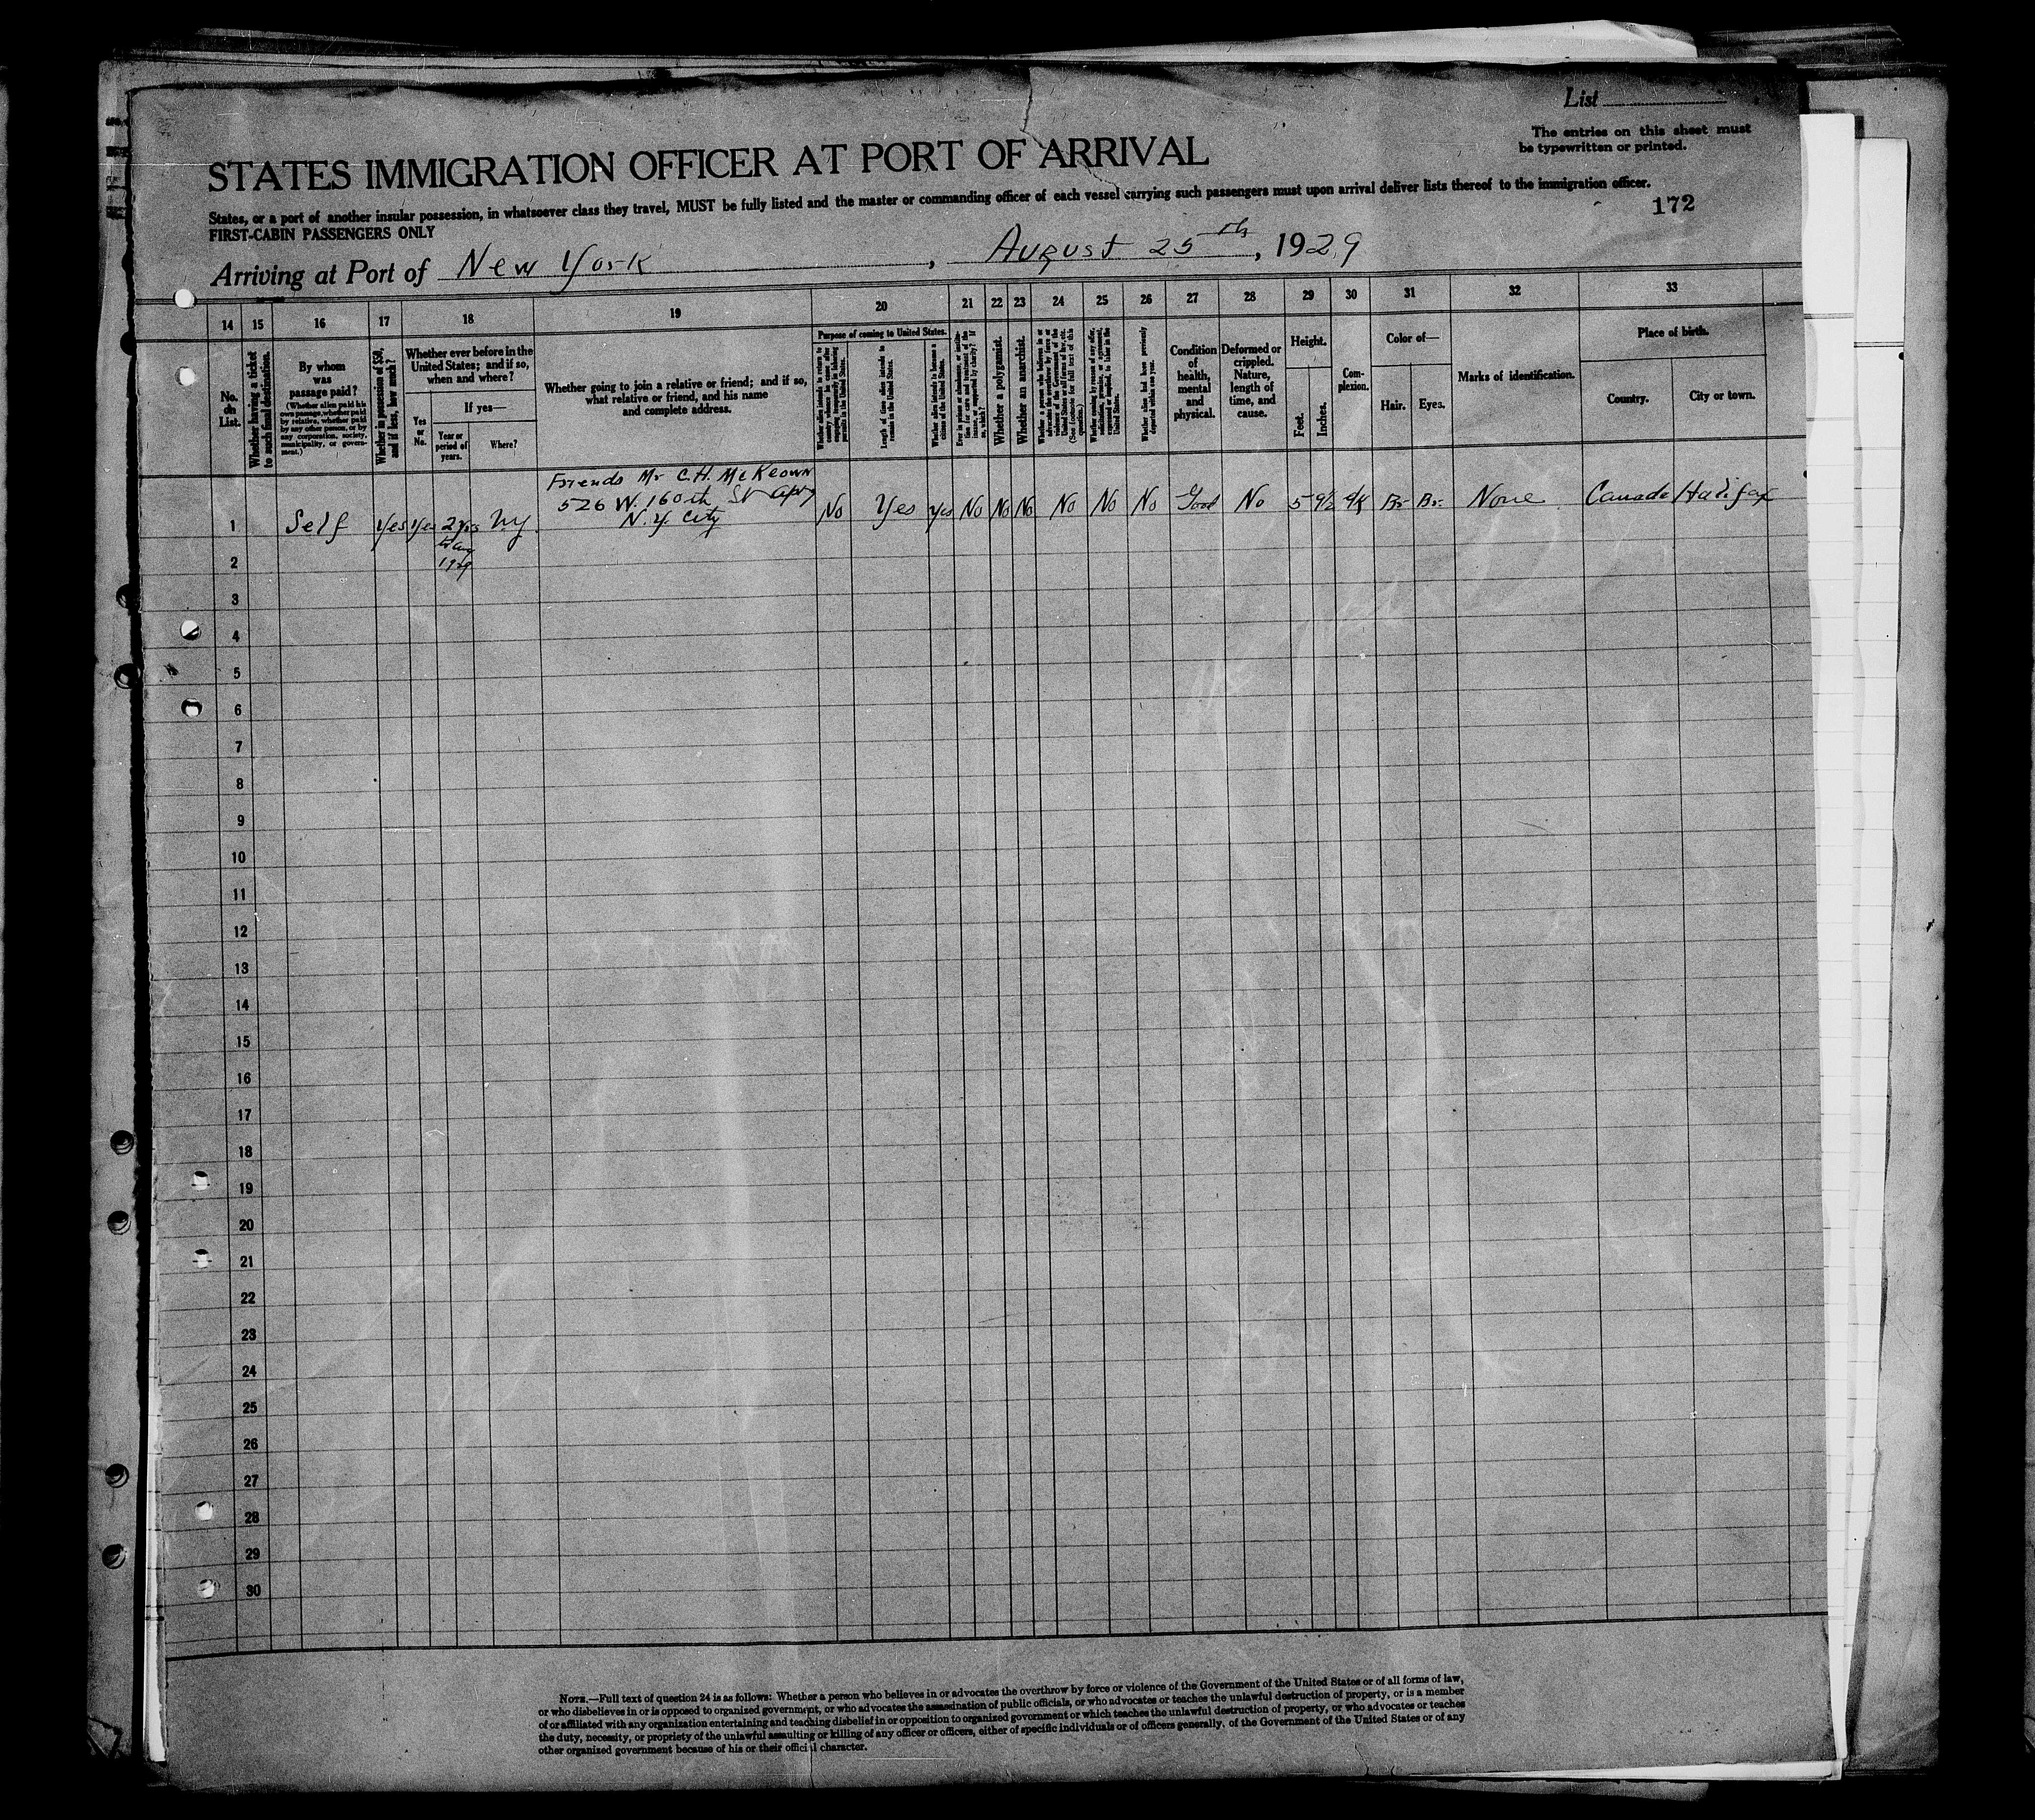 List
The entries on this sheet must
be typewritten or printed.
STATES IMMIGRATION OFFICER AT PORT OF ARRIVAL
States, or a port of another insular possession, in whatsoever class they travel, MUST be fully listed and the master or commanding officer of each vessel carrying such passengers must upon arrival deliver lists thereof to the immigration officer.
172
FIRST-CABIN PASSENGERS ONLY
Arriving at Port of New York, August 25th, 1929
14 15 16 17 18 19 20 21 22 23 24 25 26 27 28 29 30 31 32 33
No.
on
List.
Whether having a ticket
to such final destination.
By whom
was
passage paid?
(Whether alien paid his
own passage, whether paid
by relative, whether paid
by any other person, or by
any corporation, society,
municipality, or govern-
ment.)
Whether in possession of $50,
and if less, how much?
Whether ever before in the
United States; and if so,
when and where?
Yes
or
No.
If yes—
Year or
period of
years.
Where?
Whether going to join a relative or friend; and if so,
what relative or friend, and his name
and complete address.
Purpose of coming to United States.
Length of time alien intends to
remain in the United States.
Whether alien intends to become a
citizen of the United States.
Whether a polygamist.
Whether an anarchist.
Whether alien had been previously
deported within one year.
Condition
of
health,
mental
and
physical.
Deformed or
crippled.
Nature,
length of
time, and
cause.
Height.
Feet.
Inches.
Com-
plexion.
Color of—
Hair.
Eyes.
Marks of identification.
Place of birth.
Country.
City or town.
Friends Mr C.H. McKeown
526 W. 160th St
N.Y. City
1 Self Yes Yes 2 yrs NY No Yes Yes No No No No No No Good No 5 9½ Br Br None Canada Halifax
1929
2
3
4
5
6
7
8
9
10
11
12
13
14
15
16
17
18
19
20
21
22
23
24
25
26
27
28
29
30
NOTE.—Full text of question 24 is as follows: Whether a person who believes in or advocates the overthrow by force or violence of the Government of the United States or of all forms of law,
or who disbelieves in or is opposed to organized government, or who advocates the assassination of public officials, or who advocates or teaches the unlawful destruction of property, or is a member
of or affiliated with any organization entertaining and teaching disbelief in or opposition to organized government or which teaches the unlawful destruction of property, or who advocates or teaches
the duty, necessity, or propriety of the unlawful assaulting or killing of any officer or officers, either of specific individuals or of officers generally, of the Government of the United States or of any
other organized government because of his or their official character.